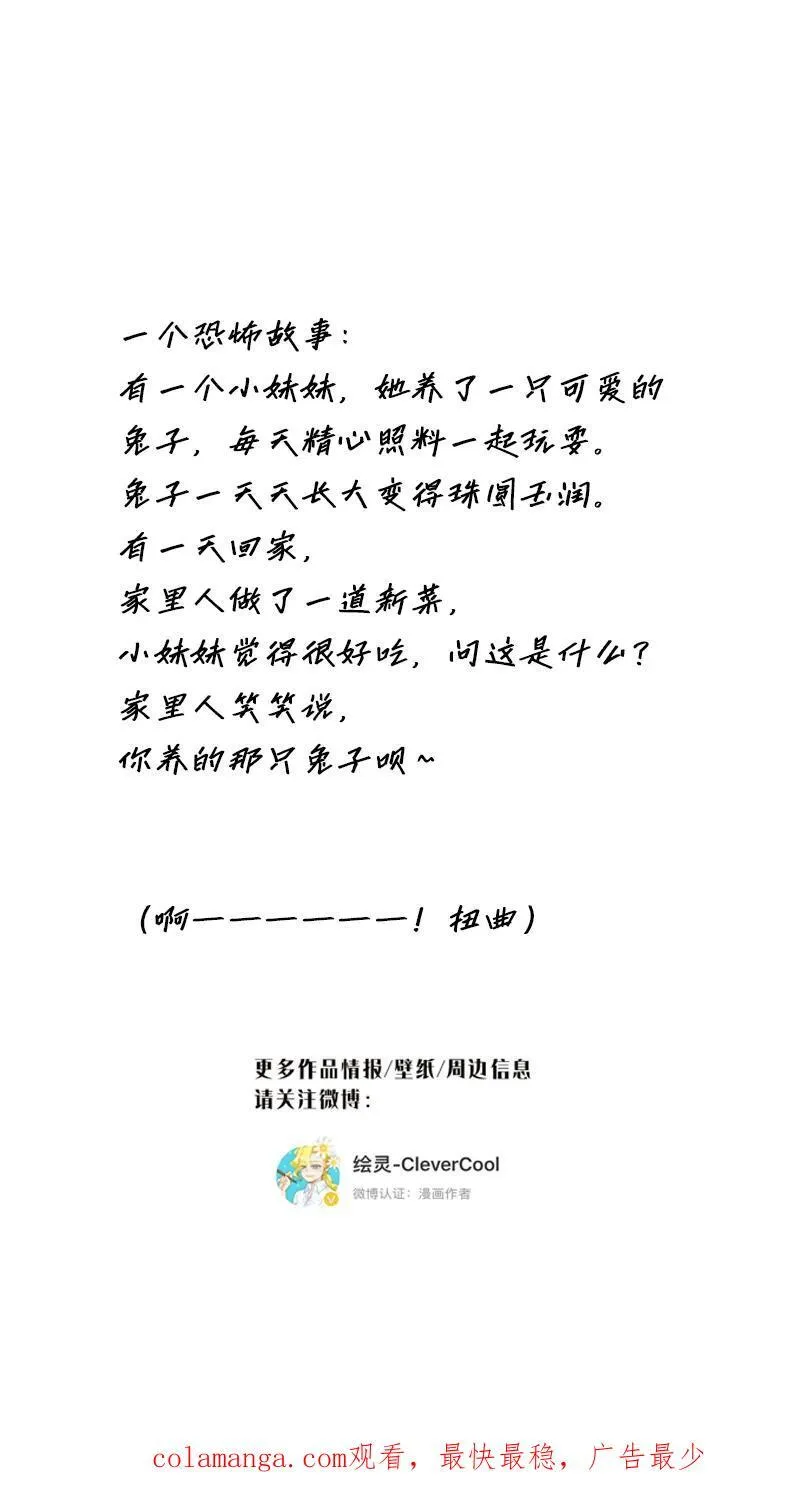 一个恐怖故事：
有一个小妹妹，她养了一只可爱的
兔子，每天精心照料一起玩耍。
兔子一天天长大变得珠圆玉润。
有一天回家，
家里人做了一道新菜，
小妹妹觉得很好吃，问这是什么？
家里人笑笑说，
你养的那只兔子呗~
（啊——————！扭曲）
更多作品情报/壁纸/周边信息
请关注微博：
绘灵-CleverCool
微博认证：漫画作者
colamanga.com观看，最快最稳，广告最少